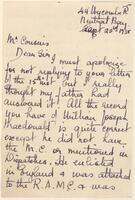 44 Wycombe Rd
Neutral Bay
Sept 20th
Mr Cousins
Dear Sir, I must apologise
for not replying to your letter
of the 15 inst, but I really
thought my father had
answered it! All the record
you have of William Joseph
Macdonald is quite correct
except he did not have
the M.C. or mentioned in
Dispatches. He enlisted
in England & was attached
to the R.A.M.C. & was